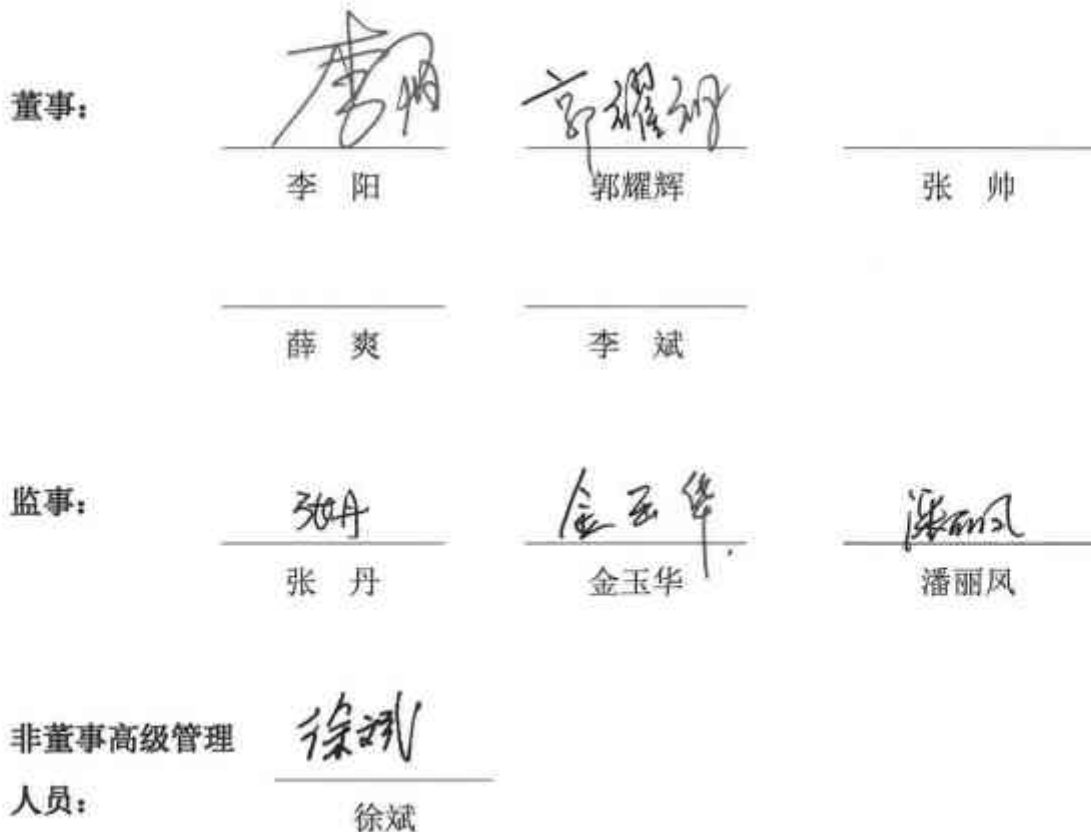 董事：
李阳 郭耀辉
李 阳 郭耀辉 张 帅
薛 爽 李 斌
监事：
张丹 金玉华 潘丽凤
张 丹 金玉华 潘丽凤
徐斌
非董事高级管理
人员：
徐斌